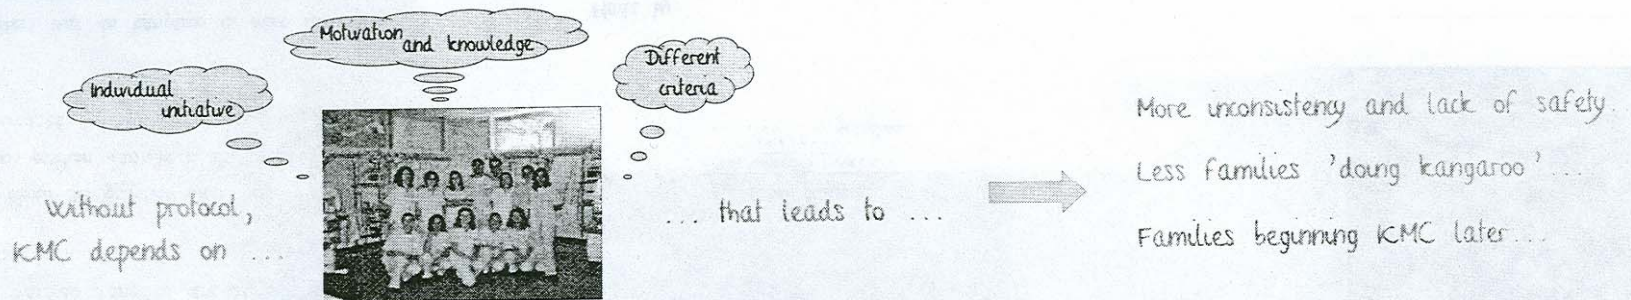 Individual
initiative
Motivation
and knowledge
Different
criteria
Without protocol,
KMC depends on ...
... that leads to ...
More inconsistency and lack of safety.
Less families 'doing kangaroo'...
Families beginning KMC later...